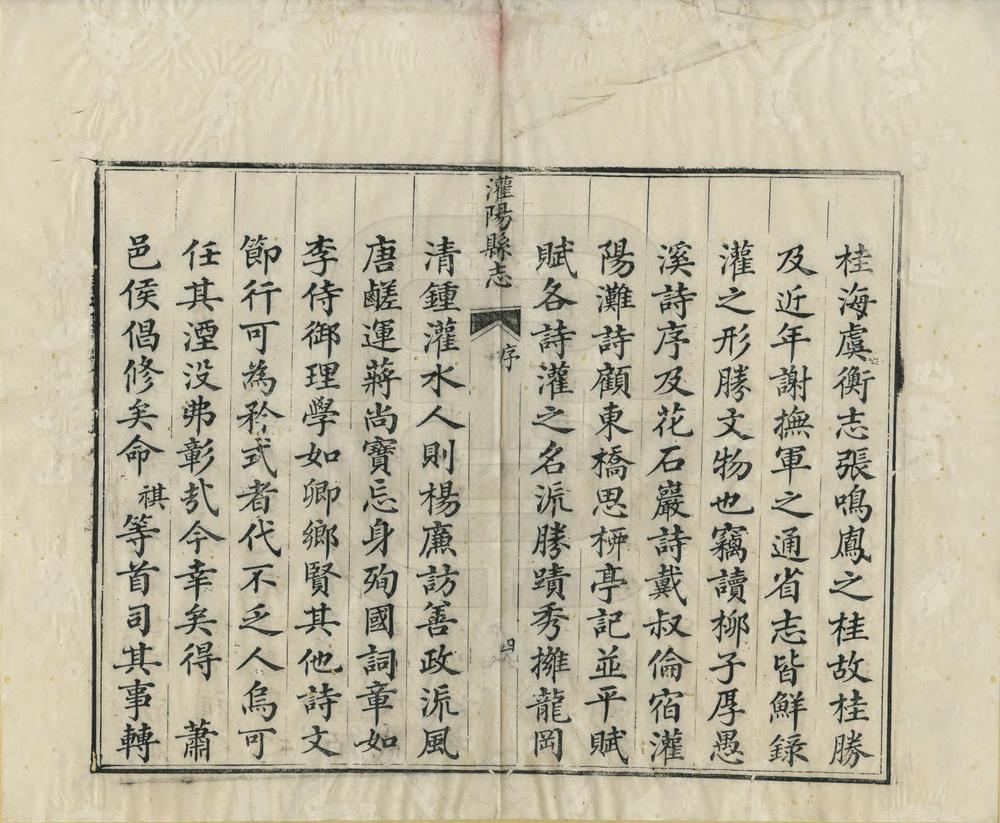 桂海虞衡志張鳴鳳之桂故桂勝
及近年謝撫軍之通省志皆鮮錄
灌之形勝文物也竊讀柳子厚愚
溪詩序及花石巖詩戴叔倫宿灌
陽灘詩顧東橋思栟亭記並平賦
賦各詩灌之名流勝蹟秀擁龍岡
灌陽縣志
序
四
清鍾灌水人則楊廉訪善政流風
唐鹺運蔣尚寶忘身殉國詞章如
李侍御理學如卿鄉賢其他詩文
節行可為矜式者代不乏人烏可
任其湮没弗彰㢤今幸矣得　蕭
邑侯倡修矣命祺等首司其事轉